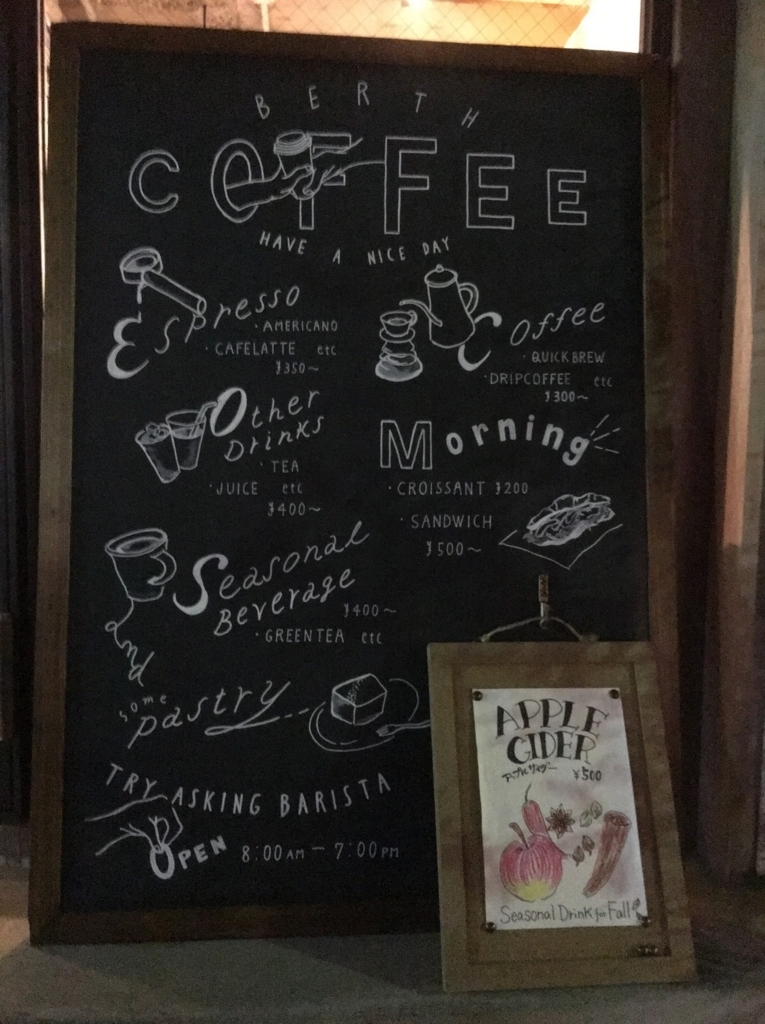 BERTH
COFFEE
HAVE A NICE DAY
Espresso
· AMERICANO
· CAFELATTE etc
¥350~
Coffee
· QUICK BREW
· DRIPCOFFEE etc
¥300~
Other
Drinks
· TEA
· JUICE etc
¥400~
Morning
· CROISSANT ¥200
· SANDWICH
¥500~
Seasonal
Beverage
¥400~
· GREEN TEA etc
and
some
pastry
TRY ASKING BARISTA
OPEN 8:00AM - 7:00PM
APPLE
CIDER
アップルサイダー ¥500
Seasonal Drink for Fall